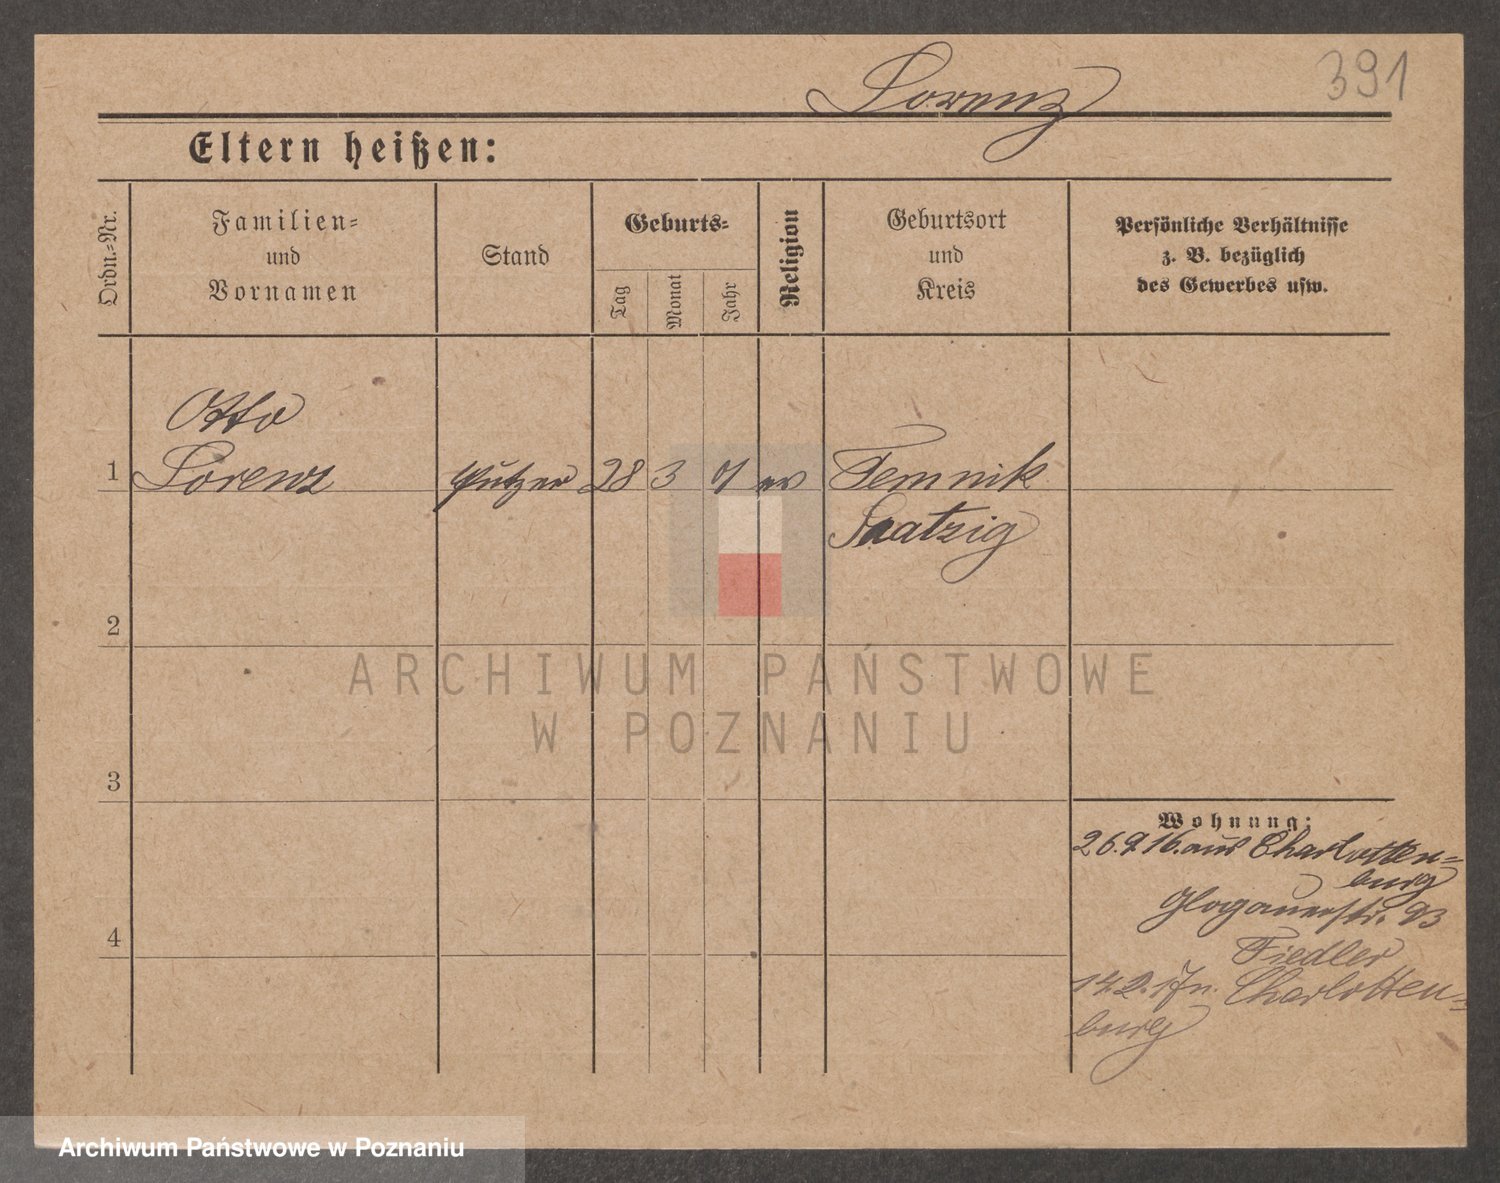 Lorenz
391
Eltern heißen:
Ordn.-Nr.
Familien-
und
Vornamen
Stand
Geburts-
Tag
Monat
Jahr
Religion
Geburtsort
und
Kreis
Persönliche Verhältnisse
z. B. bezüglich
des Gewerbes usw.
Otto
1 Lorenz Putzer 28 3 ev Temnik
Saatzig
2
ARCHIWUM PAŃSTWOWE
W POZNANIU
3
Wohnung:
26.9.16. aus Charlotten-
burg
Glogauerstr. 93
4
Fiedler
14.2.17 n. Charlotten-
burg
Archiwum Państwowe w Poznaniu